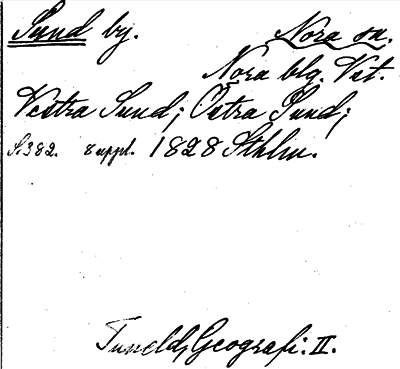 Sund by. Nora sn.
Nora blg. Vst.
Vestra Sund; Östra Sund;
S. 382. 8 uppl. 1828 Sthlm.
Tunelds Geografi. II.